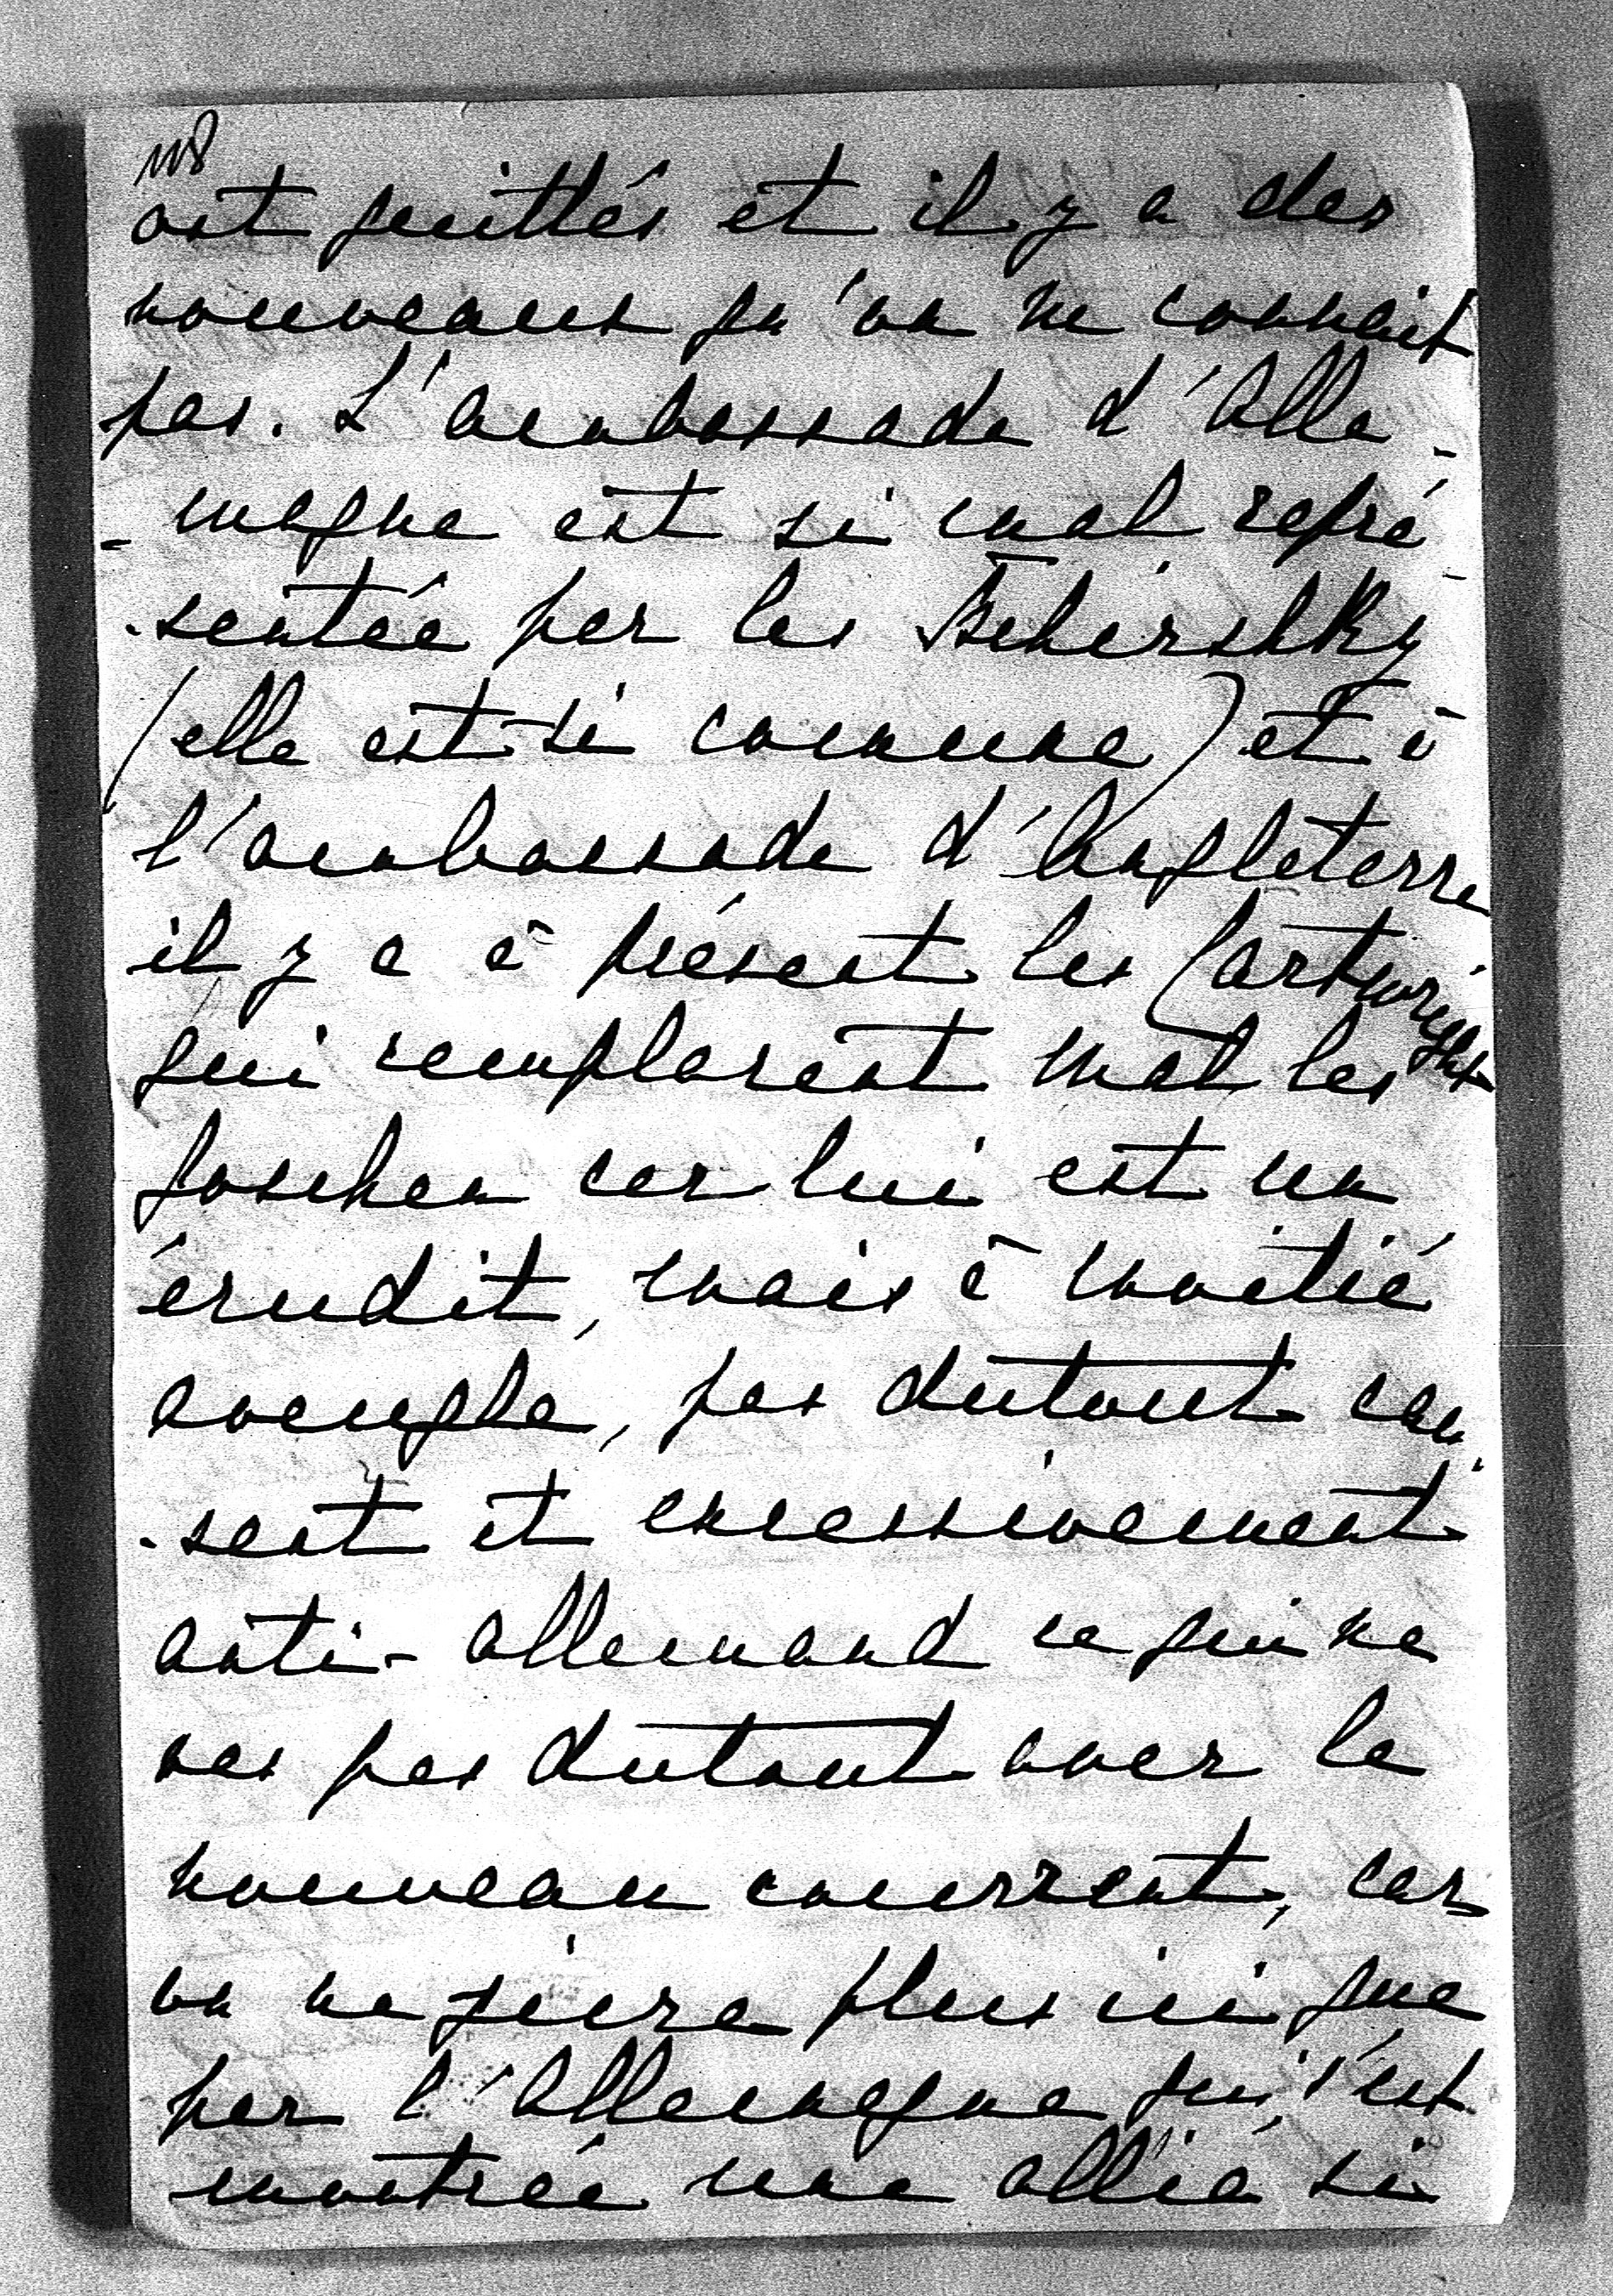 ont quittés et il y a des
nouveaux qu'on ne connait
pas. L'ambassade d'Alle-
-magne est si mal repré-
-sentée par les Tschirshky
(elle est si commune) et à
l'ambassade d'Angleterre
il y a à présent les Cartwright
qui remplacent mal les
Goschen car lui est un
érudit, mais à moitié
aveugle, pas dutout cau-
-sent et excessivement
anti-allemand ce qui ne
vas pas dutout avec le
nouveau courrent, car
on ne jure plus ici que
par l'Allemagne qui s'est
montrée une allié si